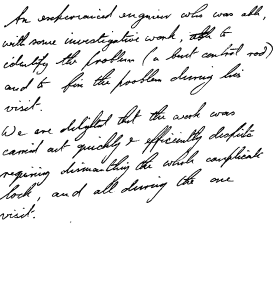 An experienced engineer who was able,
with some investigative work, to
identify the problem (a bent control rod)
and to fix the problem during his
visit.
We are delighted that the work was
carried out quickly & efficiently despite
requiring dismantling the whole complicate
lock, and all during the one
visit.